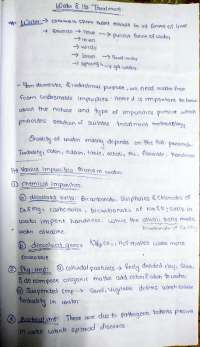 Water & Its Treatment
* Water → common stem need exists in all forms of live
- Sources → rain → purest form of water
→ river
→ wells
→ Ocean → Sea water
→ springs
- For domestic & industrial purpose, we need water free
from undesirable impurities hence it is important to know
about the nature and type of impurities present which
provides selection of suitable treatment methodology
Quality of water mainly depends on the foll. parameters
Turbidity, color, odour, taste, acidity, Hardness
Various impurities present in water
① Chemical impurities
a) dissolved salts: Bicarbonates, Sulphates & Chlorides of
Ca & Mg; carbonates, bicarbonates of Na & in
water impart hardness. While the salts make
water alkaline.
b) dissolved gases makes water more
corrosive
② Phy. imp: a) colloidal particles → finely divided clay, Silica,
& decompose organic matter add color & odor to water
b) Suspended imp → Sand, Vegetable debris which cause
turbidity in water.
These are due to pathogenic bacteria present
in water which spread diseases